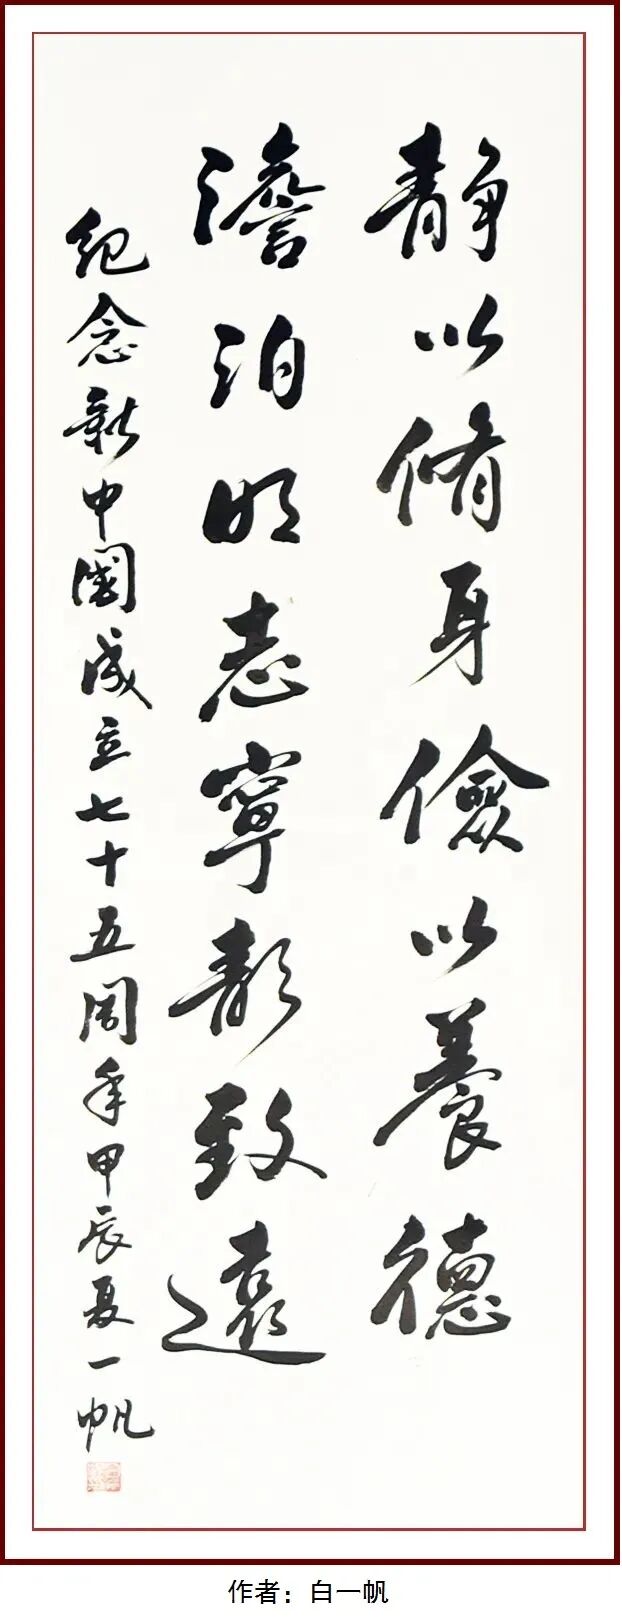 静以脩身儉以養德
澹泊明志寧靜致遠
紀念新中國成立七十五周年甲辰夏一帆
作者：白一帆